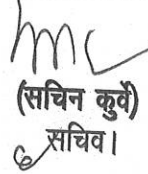 (सचिन कुर्वे)
सचिव।